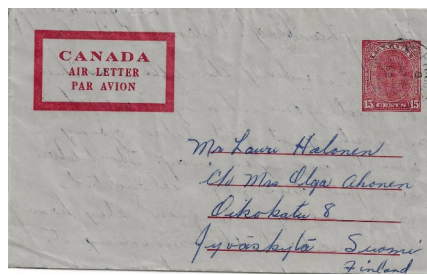 CANADA
AIR LETTER
PAR AVION
15 CENTS 15
Mr Lauri Halonen
c/o Mrs Olga Ahonen
Oikokatu 8
Jyväskylä Suomi
Finland